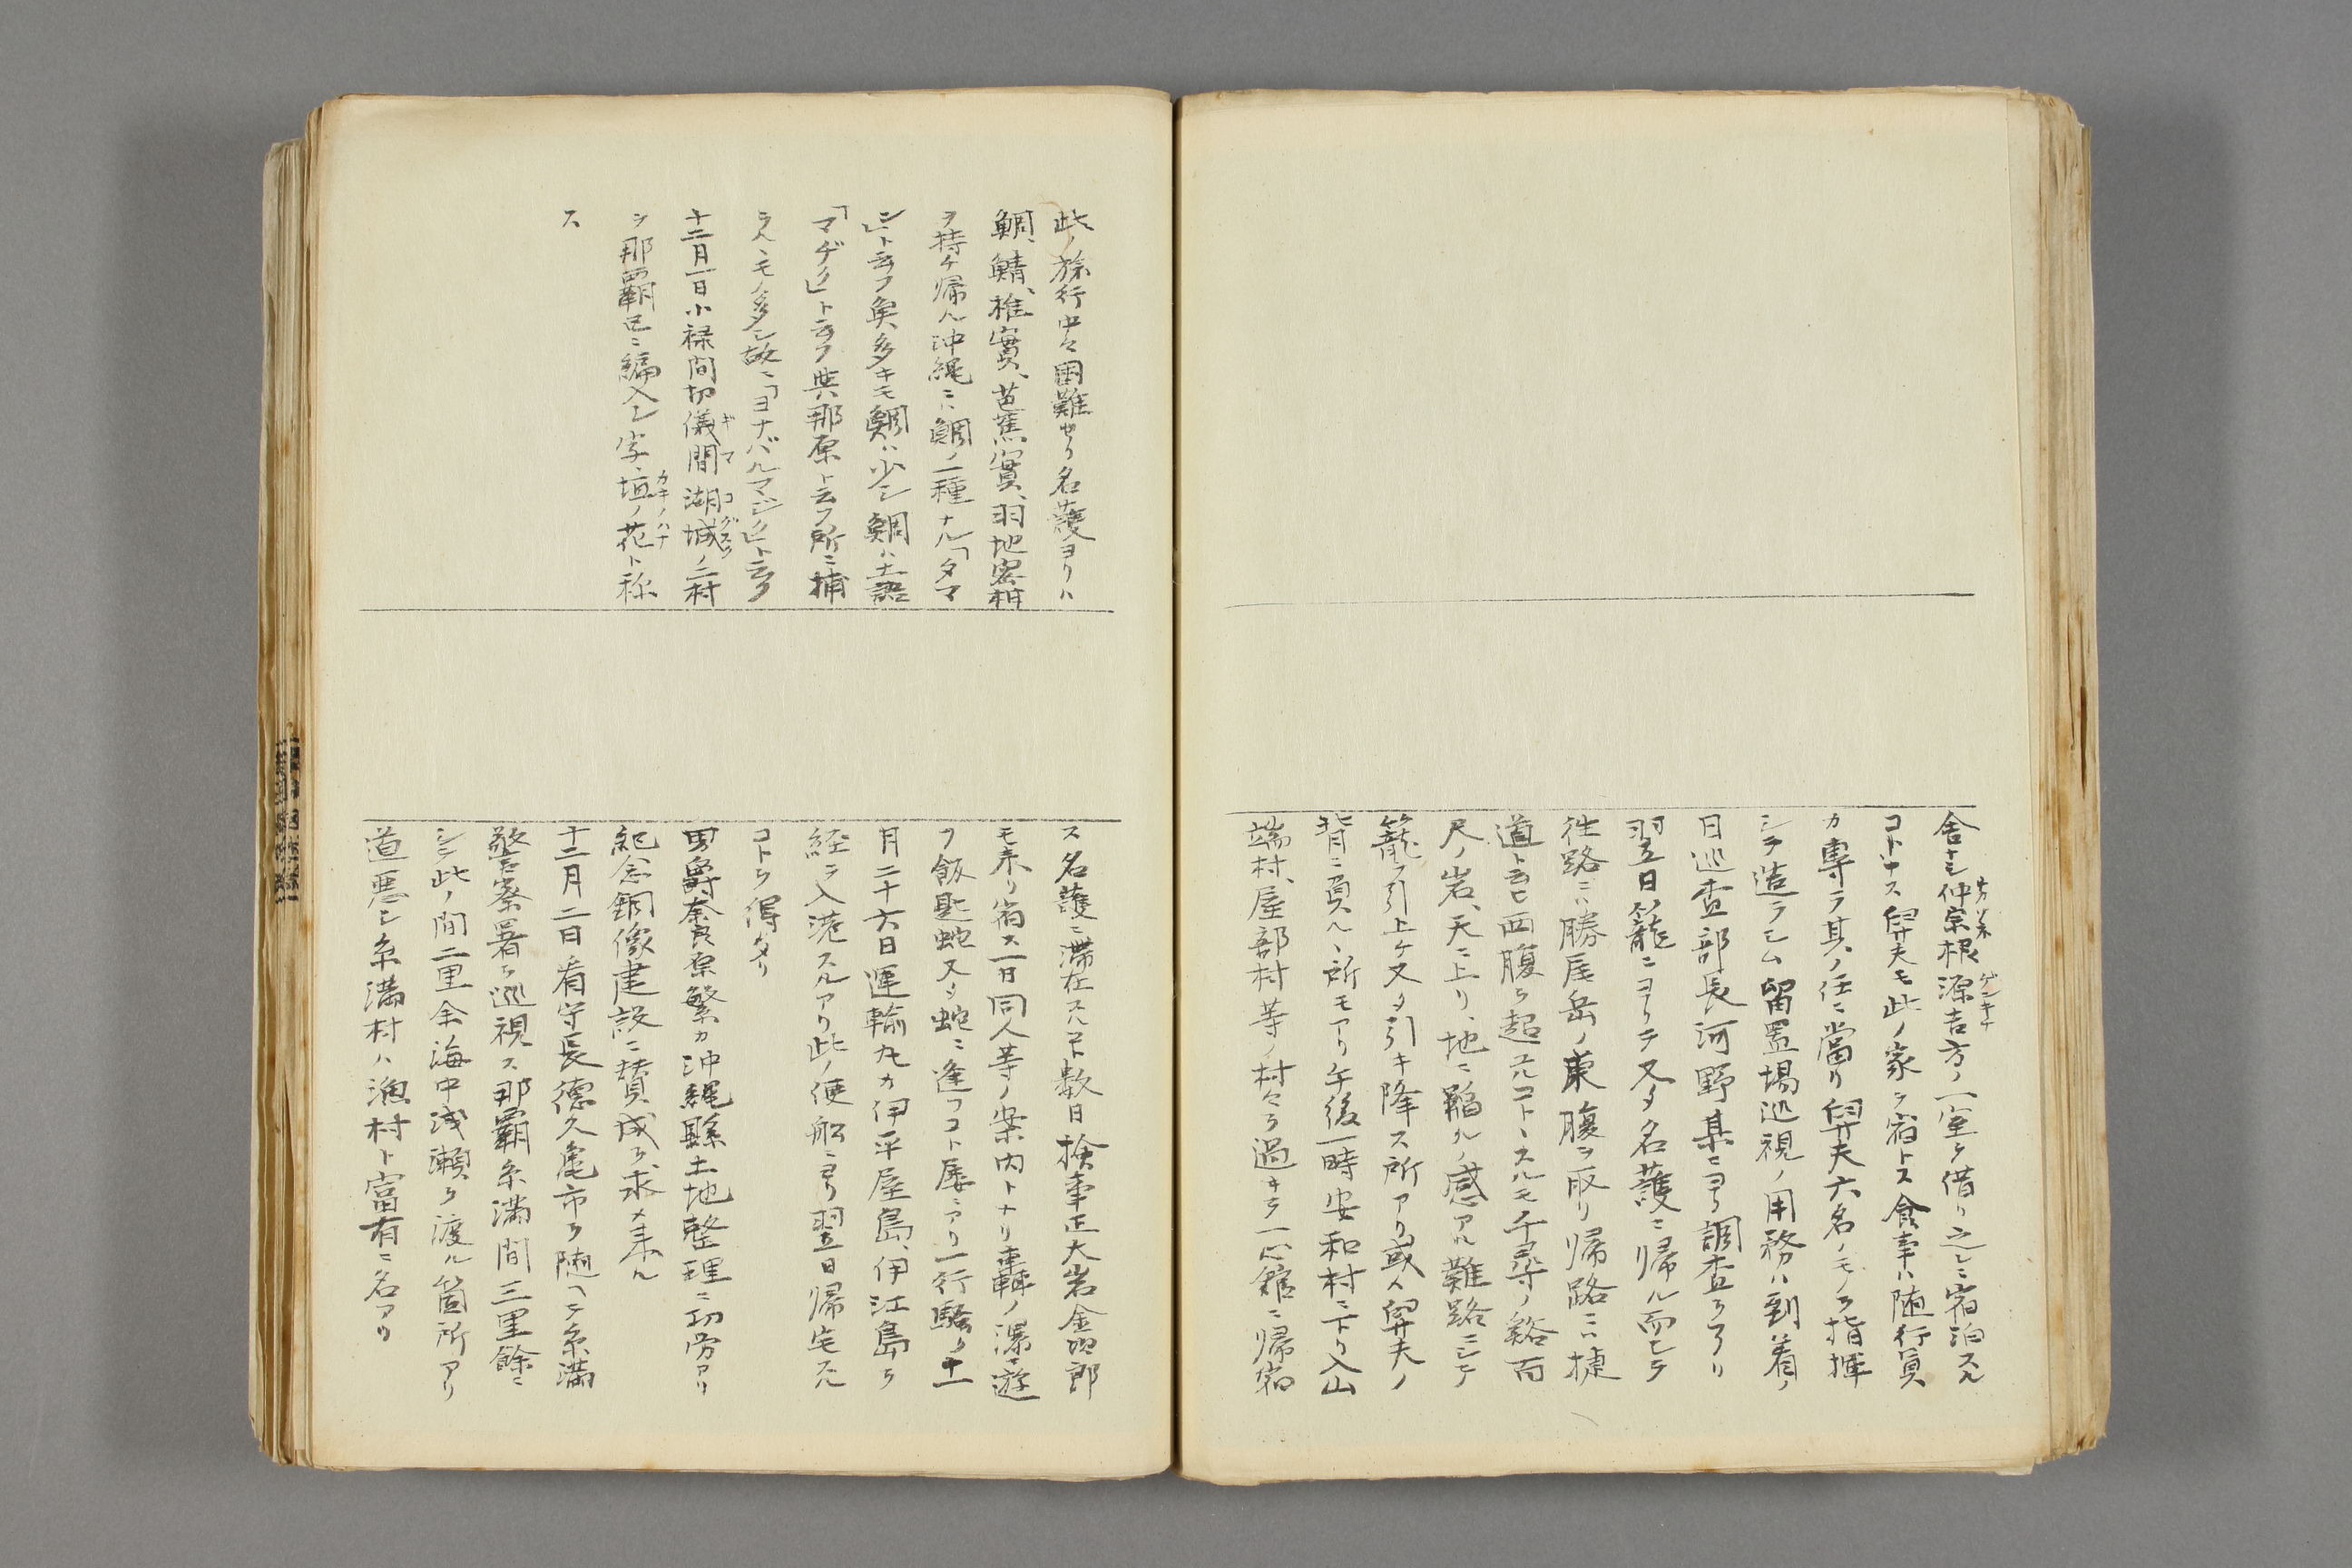 舎ナシ仲宗根源吉方ノ一室ヲ借リ之レニ宿泊スル
ゲンキチ
コトヽナス舁夫モ此ノ家ヲ宿トス食事ハ随行員
カ専ラ其ノ任ニ當リ舁夫六名ノモノヲ指揮
シテ造ラシム留置場巡視ノ用務ハ到着ノ
日巡査部長河野某ニヨリ調査ヲ了リ
翌日籠ニヨリテ又タ名護ニ帰ル而シテ
往路ニハ勝尾岳ノ東腹ヲ取リ帰路ニハ捷
道ト云ヒ西腹ヲ超ユルコトヽスルモ千尋ノ谿百
尺ノ岩、天ニ上リ、地ニ蹈ルノ感アル難路ニシテ
籠ヲ引上ケ又タ引キ降ス所アリ或ハ舁夫ノ
背ニ負ハルヽ所モアリ午後一時安和村ニ下リ入山
端村、屋部村等ノ村々ヲ過キテ一心館ニ帰宿
此ノ旅行中々困難セリ名護ヨリハ
鯛、鯖、椎實、芭蕉實、羽地蜜柑
ヲ持チ帰ル沖縄ニハ鯛ノ一種ナル「タマ
ン」ト云フ魚多キモ鯛ハ少シ鯛ハ土語
「マヂク」ト云フ與那原ト云フ所ニ捕
ラルヽモノ多シ故ニ「ヨナバルマジク」ト云フ
十二月一日小禄間切儀間湖城ノ二村
ギマ コグスク
ヲ那覇区ニ編入シ字、垣ノ花ト称
カキノハナ
ス
ス名護ニ滞在スルコト数日検事正大岩金四郎
モ来リ宿ス一日同人等ノ案内トナリ轟ノ瀑ニ遊
フ飯匙蛇又タ蛇ニ逢フコト屡ニアリ一行騒ク十一
月二十六日運輸丸カ伊平屋島、伊江島ヲ
経テ入港スルアリ此ノ便船ニヨリ翌日帰宅スル
コトヲ得タリ
男爵奈良原繁カ沖縄縣土地整理ニ功労アリ
紀念銅像建設ニ賛成ヲ求メ来ル
十二月二日看守長徳久亀市ヲ随ヘテ糸満
警察署ヲ巡視ス那覇糸満間三里餘ニ
シテ此ノ間二里余ノ海中浅瀬ヲ渡ル箇所アリ
道悪シ糸満村ハ漁村ト富有ニ名アリ